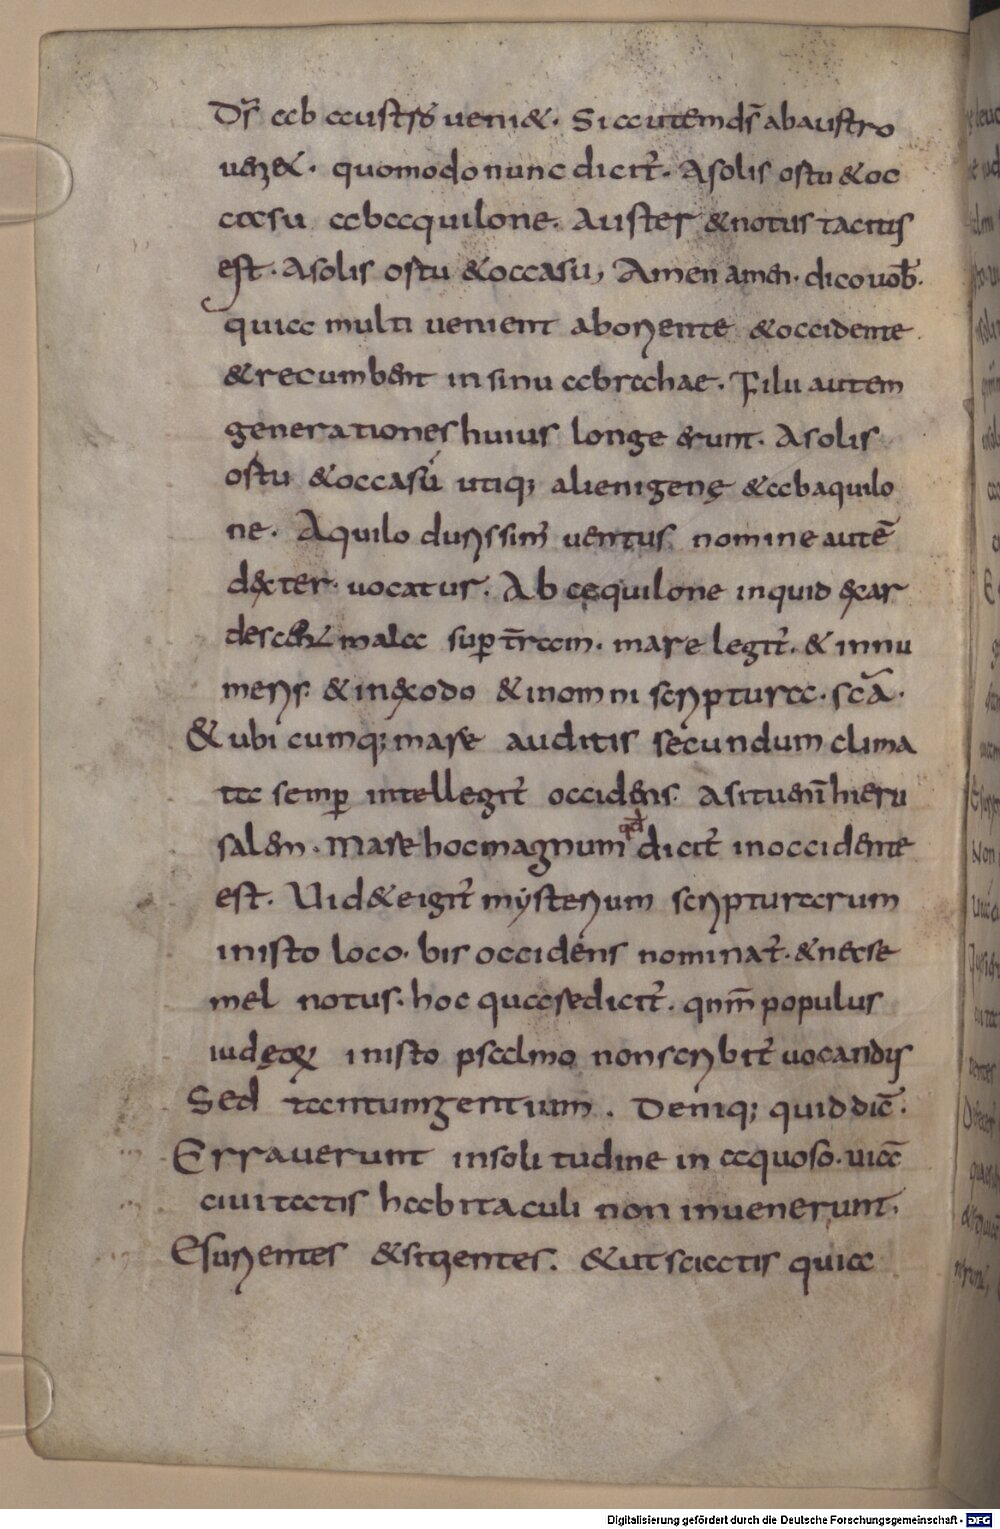 Dꝰs ab austro ueni&. Si autem ds̄ ab austro
ueni&. quomodo nunc dicit̄. A solis ortu & oc
casu ab aquilone. Auster & notus tacitus
est. A solis ortu & occasu, Amen amen. dico uob̄.
quia multi uenient ab oriente & occidente.
& recumbent in sinu abrahae. Filii autem
generationes huius longe erunt. A solis
ortu & occasu utiq; alienigenę & ab aquilo
ne. Aquilo durissim̄ uentus nomine autē
dexter. uocatur. Ab aquilone inquid exar
descent mala sup̄ t̄ram. mare legit̄. & in nu
meris. & in exodo & in omni scriptura. scā.
& ubi cumq; mare auditis secundum clima
ta semp̄ intellegit̄ occidens. A situ eni̅ hieru
salem. Mare hoc magnum qd dicit̄ in occidente
est. Uid& e igit̄ mysterium scripturarum
in isto loco. bis occidens nominat̄. & nec se
mel notus. hoc quasi dicit̄. qnm̄ populus
iudęorꝝ in isto psalmo non scribit̄ uocandus
Sed tantum gentium. Deniq; quid dic̄.
Errauerunt in soli tudine in aquoso. uiā
ciuitatis habitaculi non inuenerunt.
Esurientes & sitientes. & ut sciatis quia
Digitalisierung gefördert durch die Deutsche Forschungsgemeinschaft - DFG